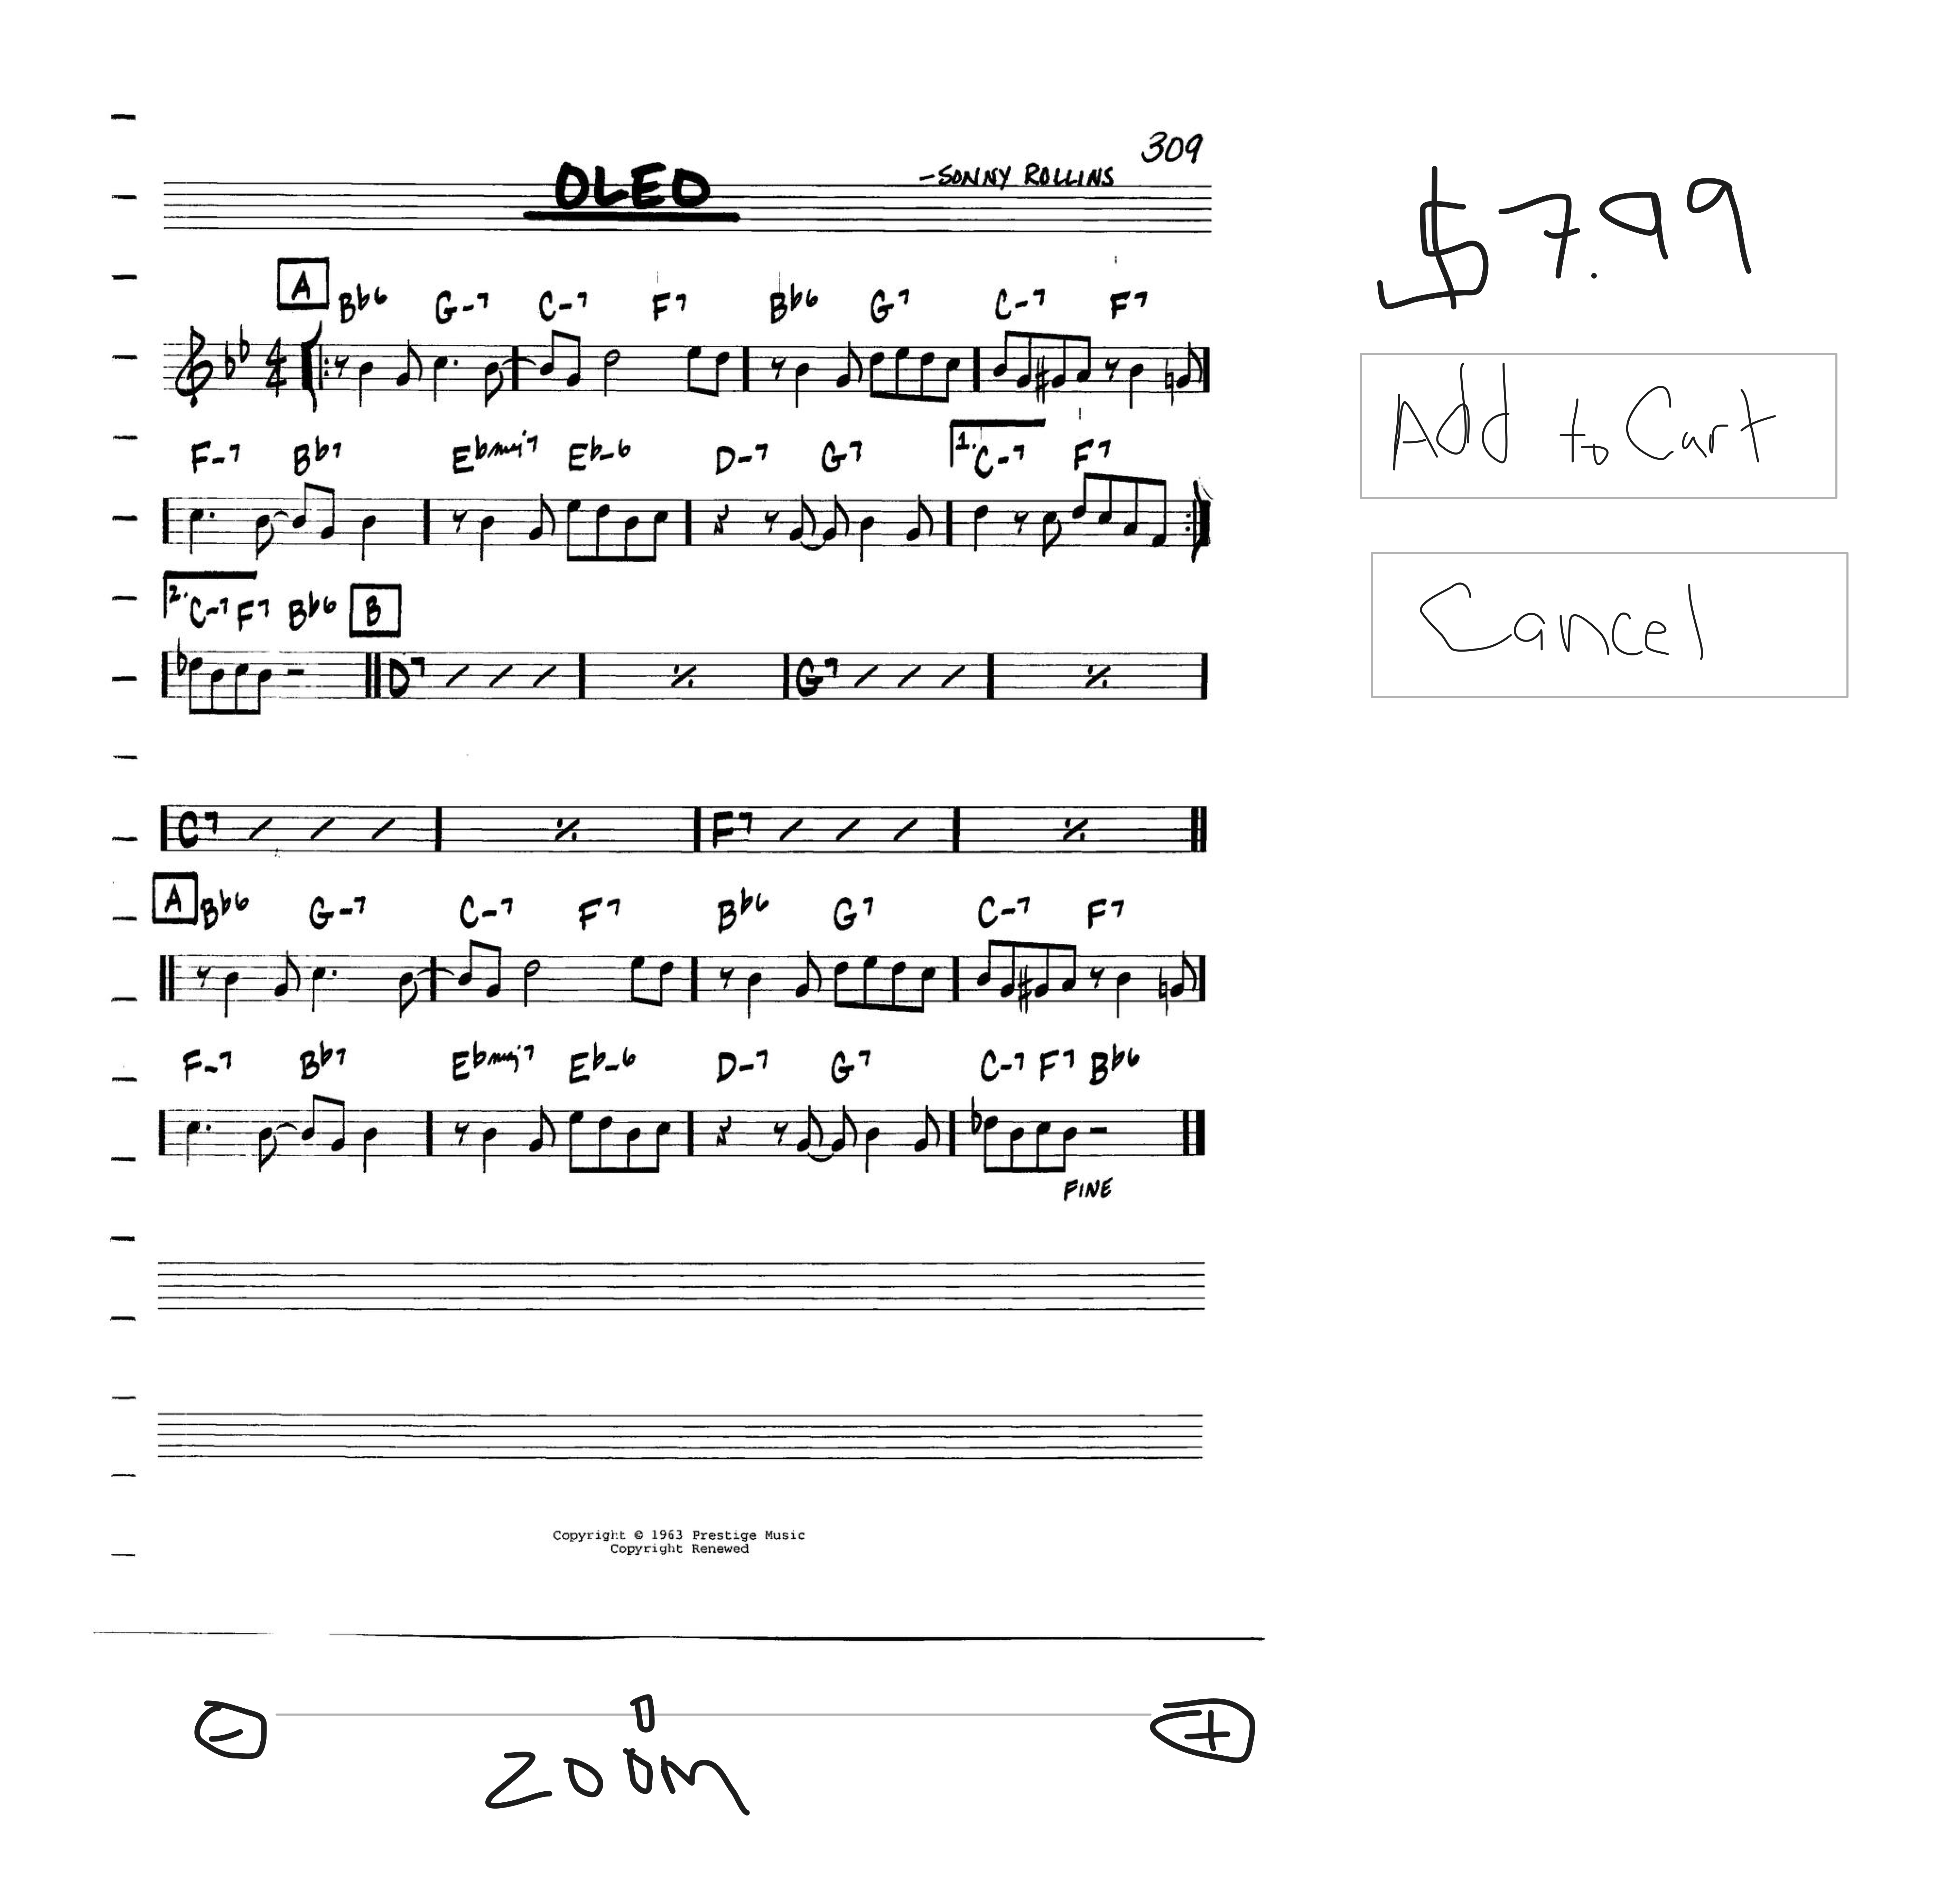 309
OLEO
-SONNY ROLLINS
$7.99
A
Bb6 G-7 C-7 F7 Bb6 G7 C-7 F7
4
4
Add to Cart
F-7 Bb7 Ebmaj7 Eb-6 D-7 G7 1. C-7 F7
Cancel
2. C-7 F7 Bb6 B
D7 G7
C7 F7
A Bb6 G-7 C-7 F7 Bb6 G7 C-7 F7
F-7 Bb7 Ebmaj7 Eb-6 D-7 G7 C-7 F7 Bb6
FINE
Copyright © 1963 Prestige Music
Copyright Renewed
- +
zoom